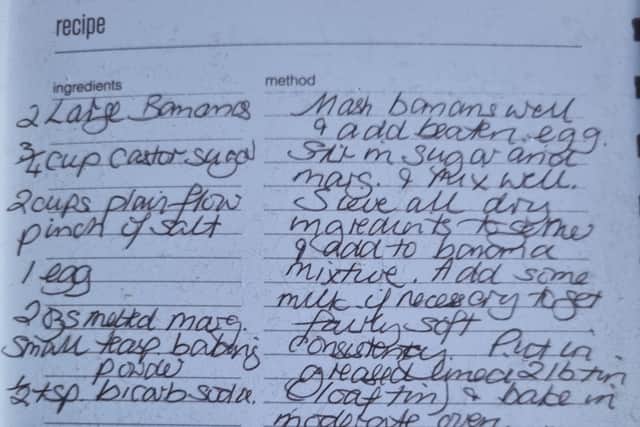 recipe
ingredients
2 Large Bananas
3/4 cup castor sugar
2 cups plain flour
pinch of salt
1 egg
2 ozs melted marg.
small teasp baking
powder
1/2 tsp bicarb soda.
method
Mash bananas well
& add beaten egg.
Stir in sugar and
marg. & mix well.
Sieve all dry
ingredients together
& add to banana
mixture. Add some
milk if necessary to get
fairly soft
consistency. Put in
greased lined 2lb tin
(loaf tin) & bake in
moderate oven